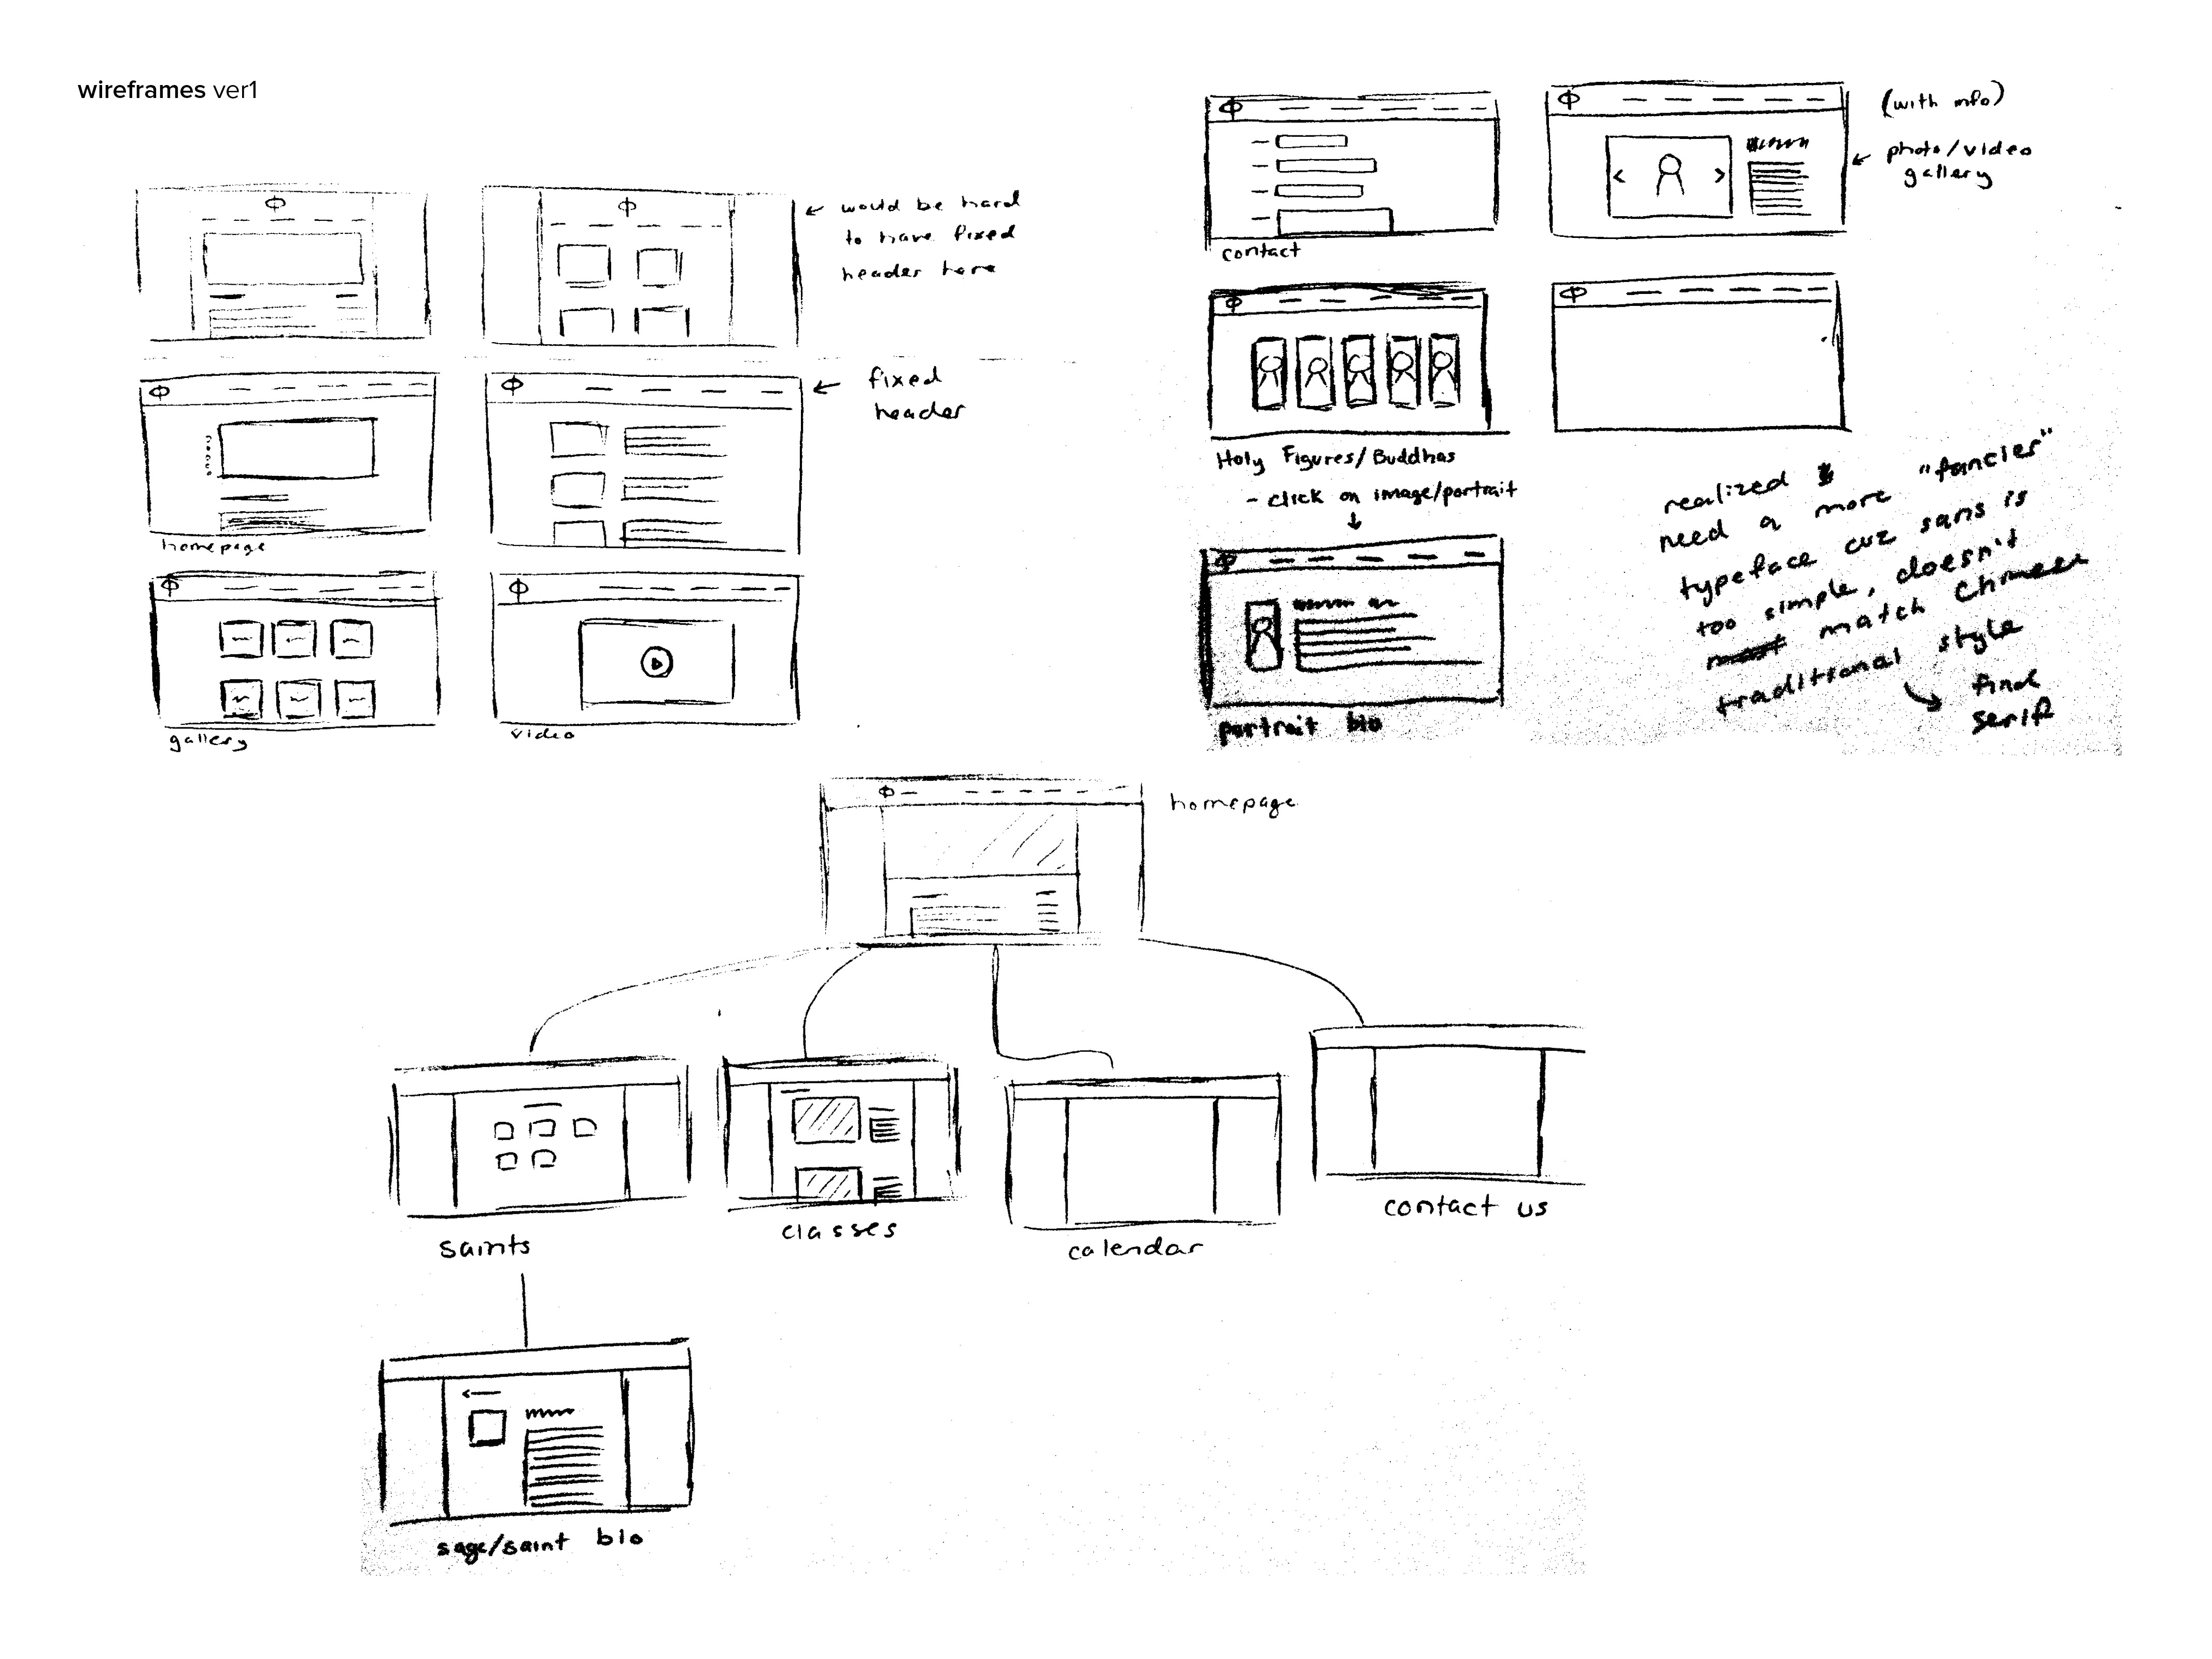 wireframes ver1
← would be hard
to have fixed
header here
← fixed
header
homepage
gallery
video
(with info)
← photo/video
gallery
contact
Holy Figures/Buddhas
- click on image/portrait
↓
portrait bio
realized
need a more "fancier"
typeface cuz sans is
too simple, doesn't
match Chinese
traditional style
↘ find
serif
homepage
saints
classes
calendar
contact us
sage/saint bio